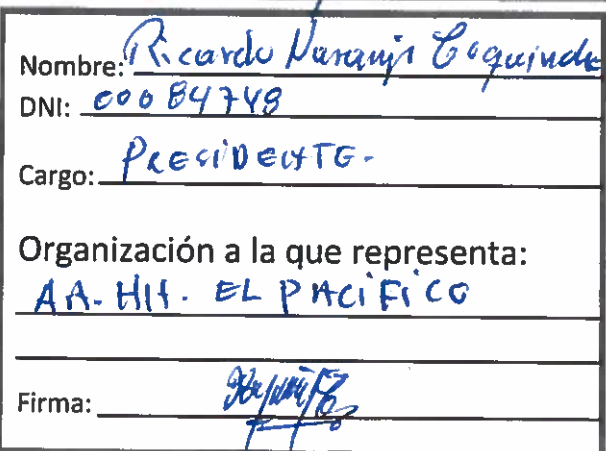 Nombre: Ricardo Naranjo Coquinche
DNI: 00084748
Cargo: PRECIDENTE.
Organización a la que representa:
AA. HH. EL PACiFiCO
Firma: